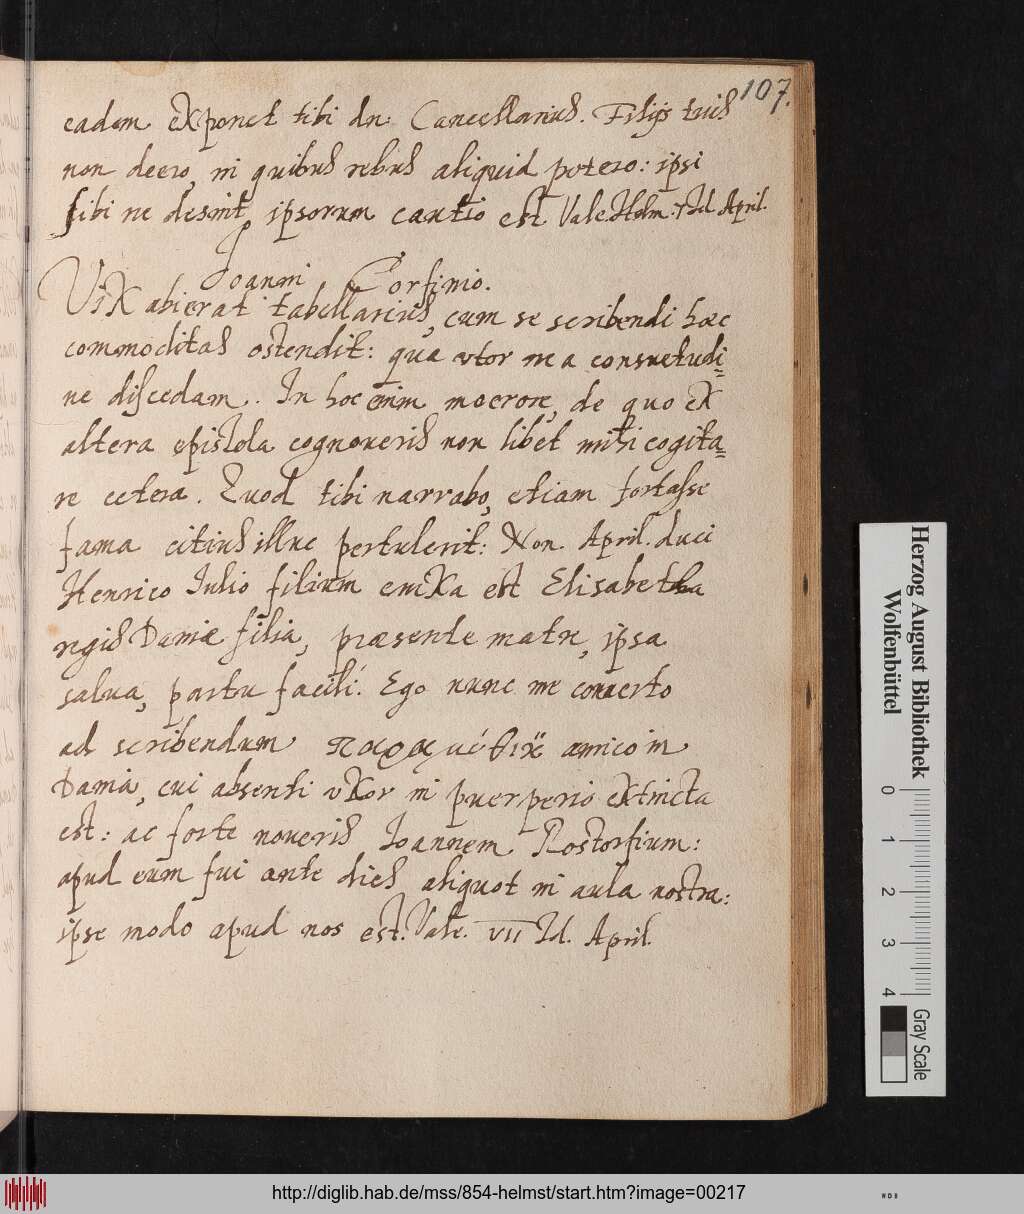 107.
eadem exponet tibi dn: Cancellarius. Filijs tuis
non deero, in quibus rebus aliquid potero: ipsi
sibi ne desint, ipsorum cautio est. Vale. Helm. 7 Id. April.
Joanni Corfinio.
Vix abierat tabellarius, cum se scribendi haec
commoditas ostendit: qua utor ne a consuetudi=
ne discedam. In hoc enim moerore, de quo ex
altera epistola cognoueris non libet mihi cogita=
re cetera. Quod tibi narrabo, etiam fortasse
fama citius illuc pertulerit: Non. April. duci
Henrico Julio filium enixa est Elisabetha
regis Daniæ filia, præsente matre, ipsa
salua, partu facili. Ego nunc me conuerto
ad scribendum amico in
Dania, cui absenti uxor in puerperio extincta
est: ac forte noueris Joannem Rostorfium:
apud eum fui ante dies aliquot in aula nostra:
ipse modo apud nos est. Vale. VII Id. April.
Herzog August Bibliothek
Wolfenbüttel
0 1 2 3 4
Gray Scale
http://diglib.hab.de/mss/854-helmst/start.htm?image=00217